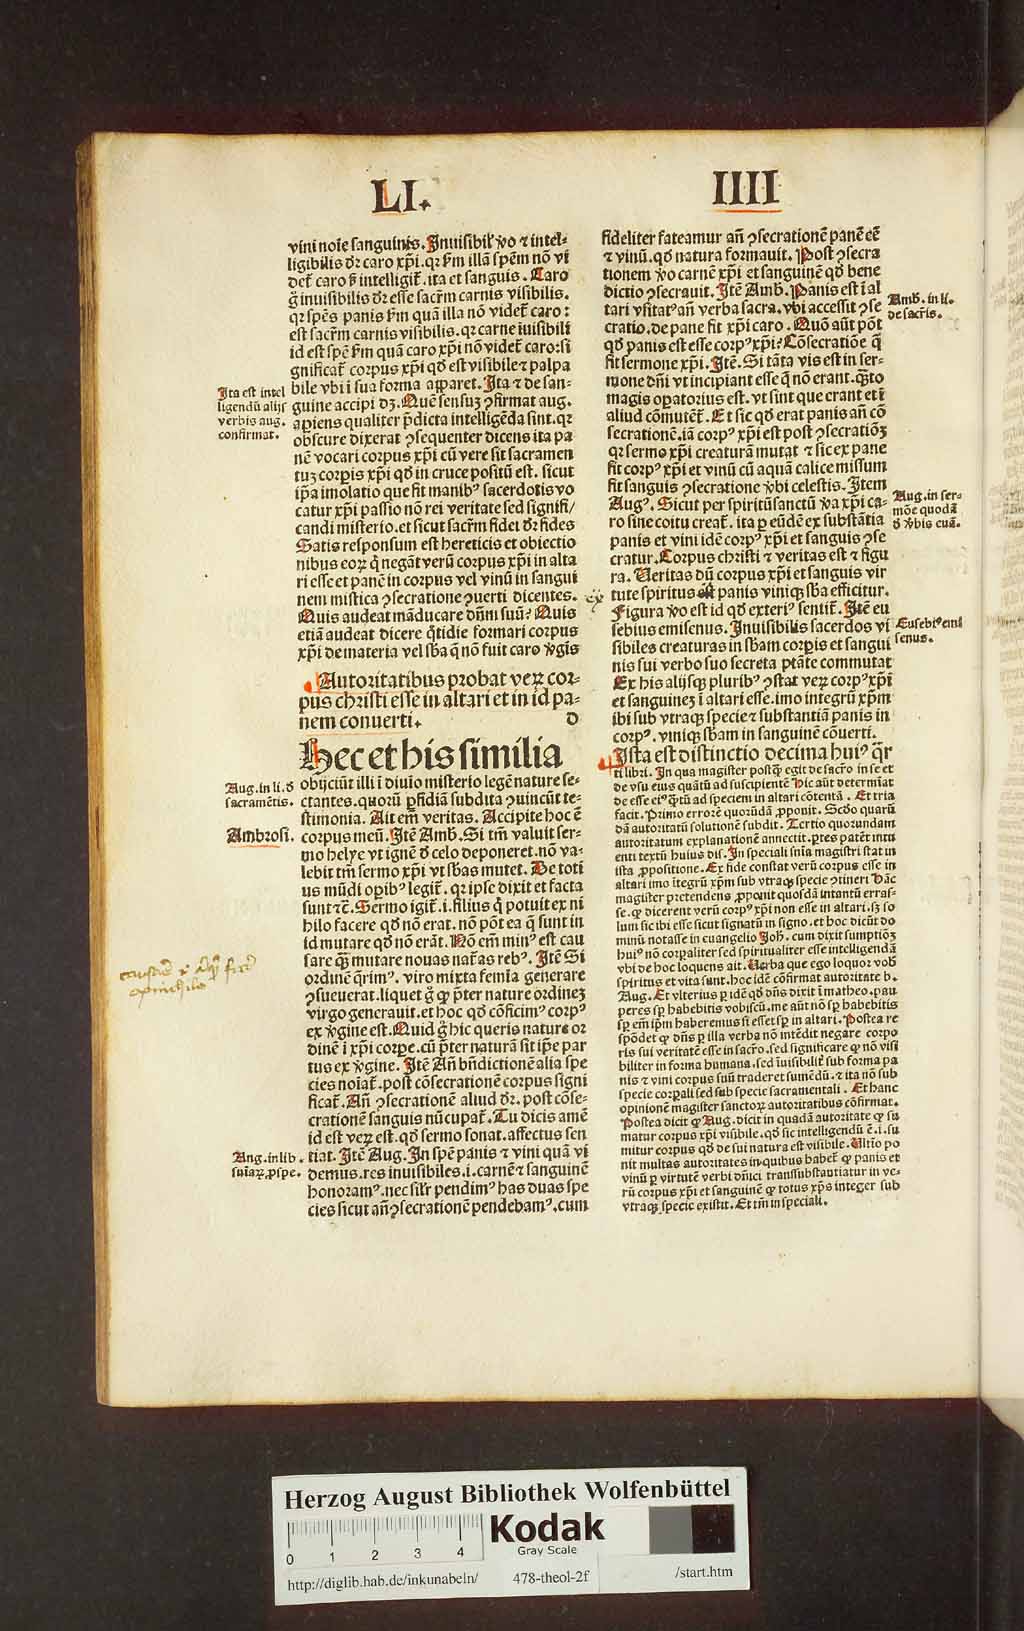 LI.
IIII
vini noīe sanguinis. Inuisibil' v̓o ⁊ intel-
ligibilis dr̄ caro xp̄i. qr ẜm illā sp̄em nō vi
det̄ caro ẜ intelligit̄. ita et sanguis. Caro
g̊ inuisibilis dr̄ esse sacr̄m carnis visibilis.
qr sp̄es panis ẜm quā illa nō videt̄ caro:
est sacr̄m carnis visibilis. qr carne īuisibili
id est sp̄e ẜm quā caro xp̄i nō videt̄ caro: si
gnificat̄ corpus xp̄i qd̄ est visibile ⁊ palpa
bile vbi i sua forma apparet. Ita ⁊ de san-
guine accipi dꝫ. Quē sensuꝫ ꝯfirmat aug.
apiens qualiter p̄dicta intelligēda sint. qr
obscure dixerat ꝯsequenter dicens ita pa
nē vocari corpus xp̄i cū vere sit sacramen
tuꝫ corpis xp̄i qd̄ in cruce positū est. sicut
ip̄a imolatio que fit manibꝰ sacerdotis vo
catur xp̄i passio nō rei veritate sed signifi/
candi misterio. et sicut sacr̄m fidei dr̄ fides
Satis responsum est hereticis et obiectio
nibus eoꝝ q̄ negāt verū corpus xp̄i in alta
ri esse et panē in corpus vel vinū in sangui
nem mistica ꝯsecratione ꝯuerti dicentes.
Quis audeat māducare dn̄m suū? Quis
etiā audeat dicere q̄tidie formari corpus
xp̄i de materia vel sb̄a q̄ nō fuit caro v̓gis
Autoritatibus probat veꝝ cor-
pus christi esse in altari et in id pa-
nem conuerti. D
Hec et his similia
obijciūt illi i diuīo misterio legē nature se-
ctantes. quorū ꝑfidiā subdita ꝯuincūt te-
stimonia. Ait em̄ veritas. Accipite hoc ē
corpus meū. Itē Amb. Si tm̄ valuit ser-
mo helye vt ignē d̓ celo deponeret. nō va-
lebit tm̄ sermo xp̄i vt sb̄as mutet. De toti
us mūdi opibꝰ legit̄. qr ipse dixit et facta
sunt ⁊c̄. Sermo igit̄. i. filius q̄ potuit ex ni
hilo facere qd̄ nō erat. nō pōt ea q̄ sunt in
id mutare qd̄ nō erāt. Nō em̄ minꝰ est cau
sare qꝫ mutare nouas nat̄as rebꝰ. Itē Si
ordinē q̄rimꝰ. viro mixta femīa generare
ꝯsueuerat. liquet g̊ ꝙ p̄ter nature ordineꝫ
virgo generauit. et hoc qd̄ cōficimꝰ corpꝰ
ex v̓gine est. Quid g̊ hic queris nature or
dinē i xp̄i corpe. cū p̄ter naturā sit ip̄e par
tus ex v̓gine. Itē An̄ bn̄dictionē alia spe
cies noīat̄. post cōsecrationē corpus signi
ficat̄. An̄ ꝯsecrationē aliud dr̄. post cōse-
crationē sanguis nūcupat̄. Tu dicis amē
id est veꝝ est. qd̄ sermo sonat. affectus sen
tiat. Itē Aug. In sp̄e panis ⁊ vini quā vi
demus. res inuisibiles. i. carnē ⁊ sanguinē
honoramꝰ. nec sil'r pendimꝰ has duas spe
cies sicut an̄ ꝯsecrationē pendebamꝰ. cum
Ita est intel
ligendū alijs
verbis aug.
confirmat.
Aug. in li. d̓
sacramētis.
Ambrosi.
Aug. in lib.
suīaꝝ ꝓspe.
fideliter fateamur an̄ ꝯsecrationē panē eē
⁊ vinū. qd̄ natura formauit. Post ꝯsecra
tionem v̓o carnē xp̄i et sanguinē qd̄ bene
dictio ꝯsecrauit. Itē Amb. Panis est i al
tari vsitatꝰ an̄ verba sacra. vbi accessit ꝯse
cratio. de pane fit xp̄i caro. Quō aūt pōt
qd̄ panis est esse corpꝰ xp̄i? Cōsecratiōe q̄
fit sermone xp̄i. Itē. Si tāta vis est in ser-
mone dn̄i vt incipiant esse q̄ nō erant. q̄ꝫto
magis opatorius est. vt sint que erant et i
aliud cōmutēt. Et sic qd̄ erat panis an̄ cō
secrationē. iā corpꝰ xp̄i est post ꝯsecratiōꝫ
qr sermo xp̄i creaturā mutat ⁊ sic ex pane
fit corpꝰ xp̄i et vinū cū aquā calice missum
fit sanguis ꝯsecratione v̓bi celestis. Item
Augꝰ. Sicut per spiritū sanctū v̓a xp̄i ca-
ro sine coitu creat̄. ita ꝑ eūdē ex substātia
panis et vini idē corpꝰ xp̄i et sanguis ꝯse
cratur. Corpus christi ⁊ veritas est ⁊ figu
ra. Veritas dū corpus xp̄i et sanguis vir
tute spiritus panis viniqꝫ sb̄a efficitur.
Figura v̓o est id qd̄ exteriꝰ sentit̄. Itē eu
sebius emisenus. Inuisibilis sacerdos vi
sibiles creaturas in sb̄am corpis et sangui
nis sui verbo suo secreta ptāte commutat
Ex his alijsqꝫ pluribꝰ ꝯstat veꝝ corpꝰ xp̄i
et sanguineꝫ i altari esse. imo integrū xp̄m
ibi sub vtraqꝫ specie ⁊ substantiā panis in
corpꝰ. viniqꝫ sb̄am in sanguinē cōuerti.
Ista est distinctio decima huiꝰ q̄r
ti libri. In qua magister postq̄ꝫ egit de sacr̄o in se et
de vsu eius quātū ad suscipientē hic aūt determīat
de esse eiꝰ q̄ꝫtū ad speciem in altari cōtentā. Et tria
facit. Primo errorē quorūdā ꝓponit. Scd̄o quarū
dā autoritatū solutionē subdit. Tertio quorundam
autoritatum explanationē annectit. ꝑtes patēt intu
enti textū huius dis. In speciali sn̄ia magistri stat in
ista ꝓpositione. Ex fide constat verū corpus esse in
altari imo ītegrū xp̄m sub vtraqꝫ specie ꝯtineri hāc
magister pretendens ꝓponit quosdā intantū erras-
se. ꝙ dicerent verū corpꝰ xp̄i non esse in altari. sꝫ so
lum sic ibi esse sicut signatū in signo. et hoc dicūt do
minū notasse in euangelio Joh. cum dixit sumptiōꝫ
huiꝰ nō corpaliter sed spiritualiter esse intelligendā
vbi de hoc loquens ait. Verba que ego loquor vob̄
spiritus et vita sunt. hoc idē cōfirmāt autoritate b.
Aug. Et vlterius ꝑ idē qd̄ dn̄s dixit i matheo. pau
peres sꝑ habebitis vobiscū. me aūt nō sꝑ habebitis
sꝑ em̄ ip̄m haberemus si esset sꝑ in altari. Postea re
spōdet ꝙ dn̄s ꝑ illa verba nō intēdit negare corpo
ris sui veritatē esse in sacr̄o. sed significare ꝙ nō visi
biliter in forma humana. sed īuisibilit̄ sub forma pa
nis ⁊ vini corpus suū traderet sumēdū. ⁊ ita nō sub
specie corpali sed sub specie sacramentali. Et hanc
opinionē magister sanctoꝝ autoritatibus cōfirmat.
Postea dicit ꝙ Aug. dicit in quadā autoritate ꝙ su
matur corpus xp̄i visibile. qd̄ sic intelligendū ē. i. su
mitur corpus qd̄ de sui natura est visibile. Vltīo po
nit multas autoritates in quibus habet̄ ꝙ panis et
vinū ꝑ virtutē verbi dn̄ici transsubstantiatur in ve-
rū corpus xp̄i et sanguinē ꝙ totus xp̄s integer sub
vtraqꝫ specie existit. Et tm̄ in speciali.
Amb. in li.
de sacr̄is.
Aug. in ser-
mōe quodā
d̓ v̓bis euā.
ex
Eusebiꝰ emi
senus.
Herzog August Bibliothek Wolfenbüttel
Kodak
Gray Scale
0 1 2 3 4
http://diglib.hab.de/inkunabeln/ 478-theol-2f /start.htm